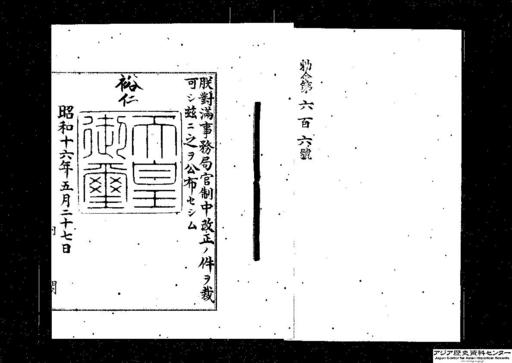 勅令第六百六號
朕對滿事務局官制中改正ノ件ヲ裁
可シ茲ニ之ヲ公布セシム
裕仁
天皇
御璽
昭和十六年五月二十七日
アジア歴史資料センター
Japan Center for Asian Historical Records